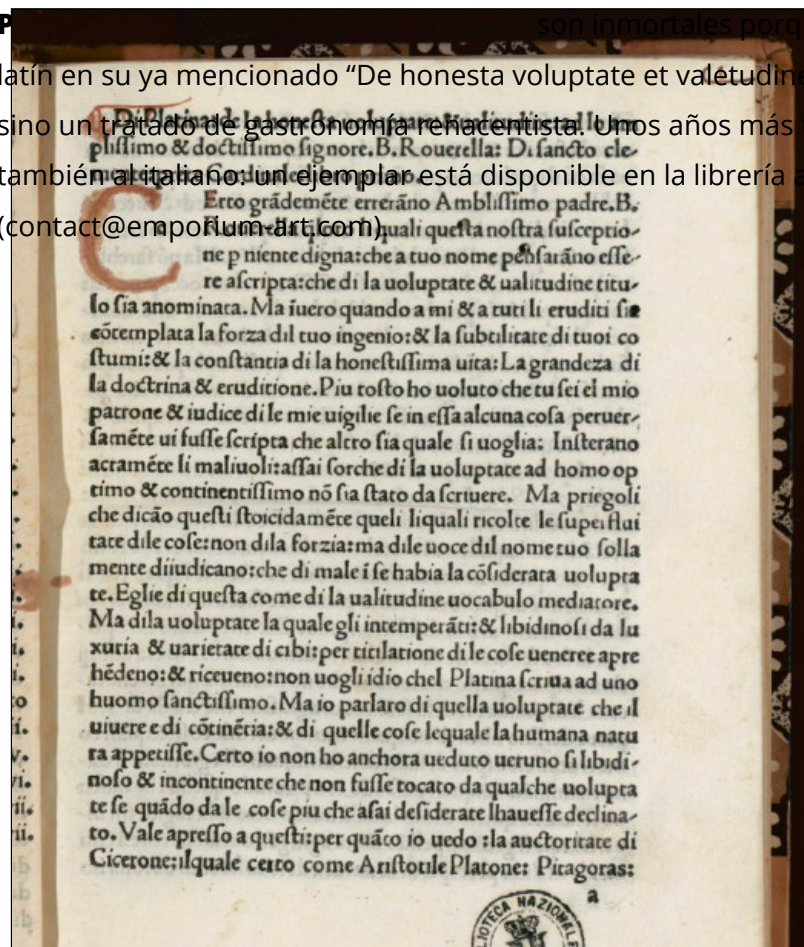 P son inmortales porq
latín en su ya mencionado “De honesta voluptate et valetudin
sino un tratado de gastronomía renacentista. Unos años más
también al italiano: un ejemplar está disponible en la librería a
(contact@emporium-art.com).
Di Platina de la honesta uoluptate: & ualitudine ad
plissimo & doctissimo signore. B. Rouerella: Di sancto cle-
Erto grādemēte errerāno Amblissimo padre. B.
quali questa nostra susceptio-
ne p niente digna: che a tuo nome pēsarāno esse-
re ascripta: che di la uoluptate & ualitudine titu-
lo sia anominata. Ma īuero quando a mi & a tuti li eruditi sia
cōtemplata la forza dil tuo ingenio: & la subtilitate di tuoi co
stumi: & la constantia di la honestissima uita: La grandeza di
la doctrina & eruditione. Piu tosto ho uoluto che tu sei el mio
patrone & iudice di le mie uigilie se in essa alcuna cosa peruer-
samēte ui fusse scripta che altro sia quale si uoglia: Insterano
acramēte li maliuoli: assai forche di la uoluptate ad homo op
timo & continentissimo nō sia stato da scriuere. Ma priegoli
che dicāo questi stoicidamēte queli liquali ricolte le superflui
tate di le cose: non di la forzia: ma di le uoce dil nome tuo solla
mente diiudicano: che di male ī se habia la cōsiderata uolupta
te. Eglie di questa come di la ualitudine uocabulo mediatore.
Ma di la uoluptate la quale gli intemperāti: & libidinosi da lu
xuria & uarietate di cibi: per titilatione di le cose ueneree apre
hēdeno: & riceueno: non uogli idio chel Platina scriua ad uno
huomo sanctissimo. Ma io parlaro di quella uoluptate che il
uiuere e di cōtinētia: & di quelle cose lequale la humana natu
ra appetisse. Certo io non ho anchora ueduto ueruno si libidi-
noso & incontinente che non fusse tocato da qualche uolupta
te se quādo da le cose piu che asai desiderate lhauesse declina-
to. Vale apresso a questi: per quāto io uedo: la auctoritate di
Cicerone: ilquale certo come Aristotile Platone: Pitagoras:
a
BIBLIOTECA NAZIONALE